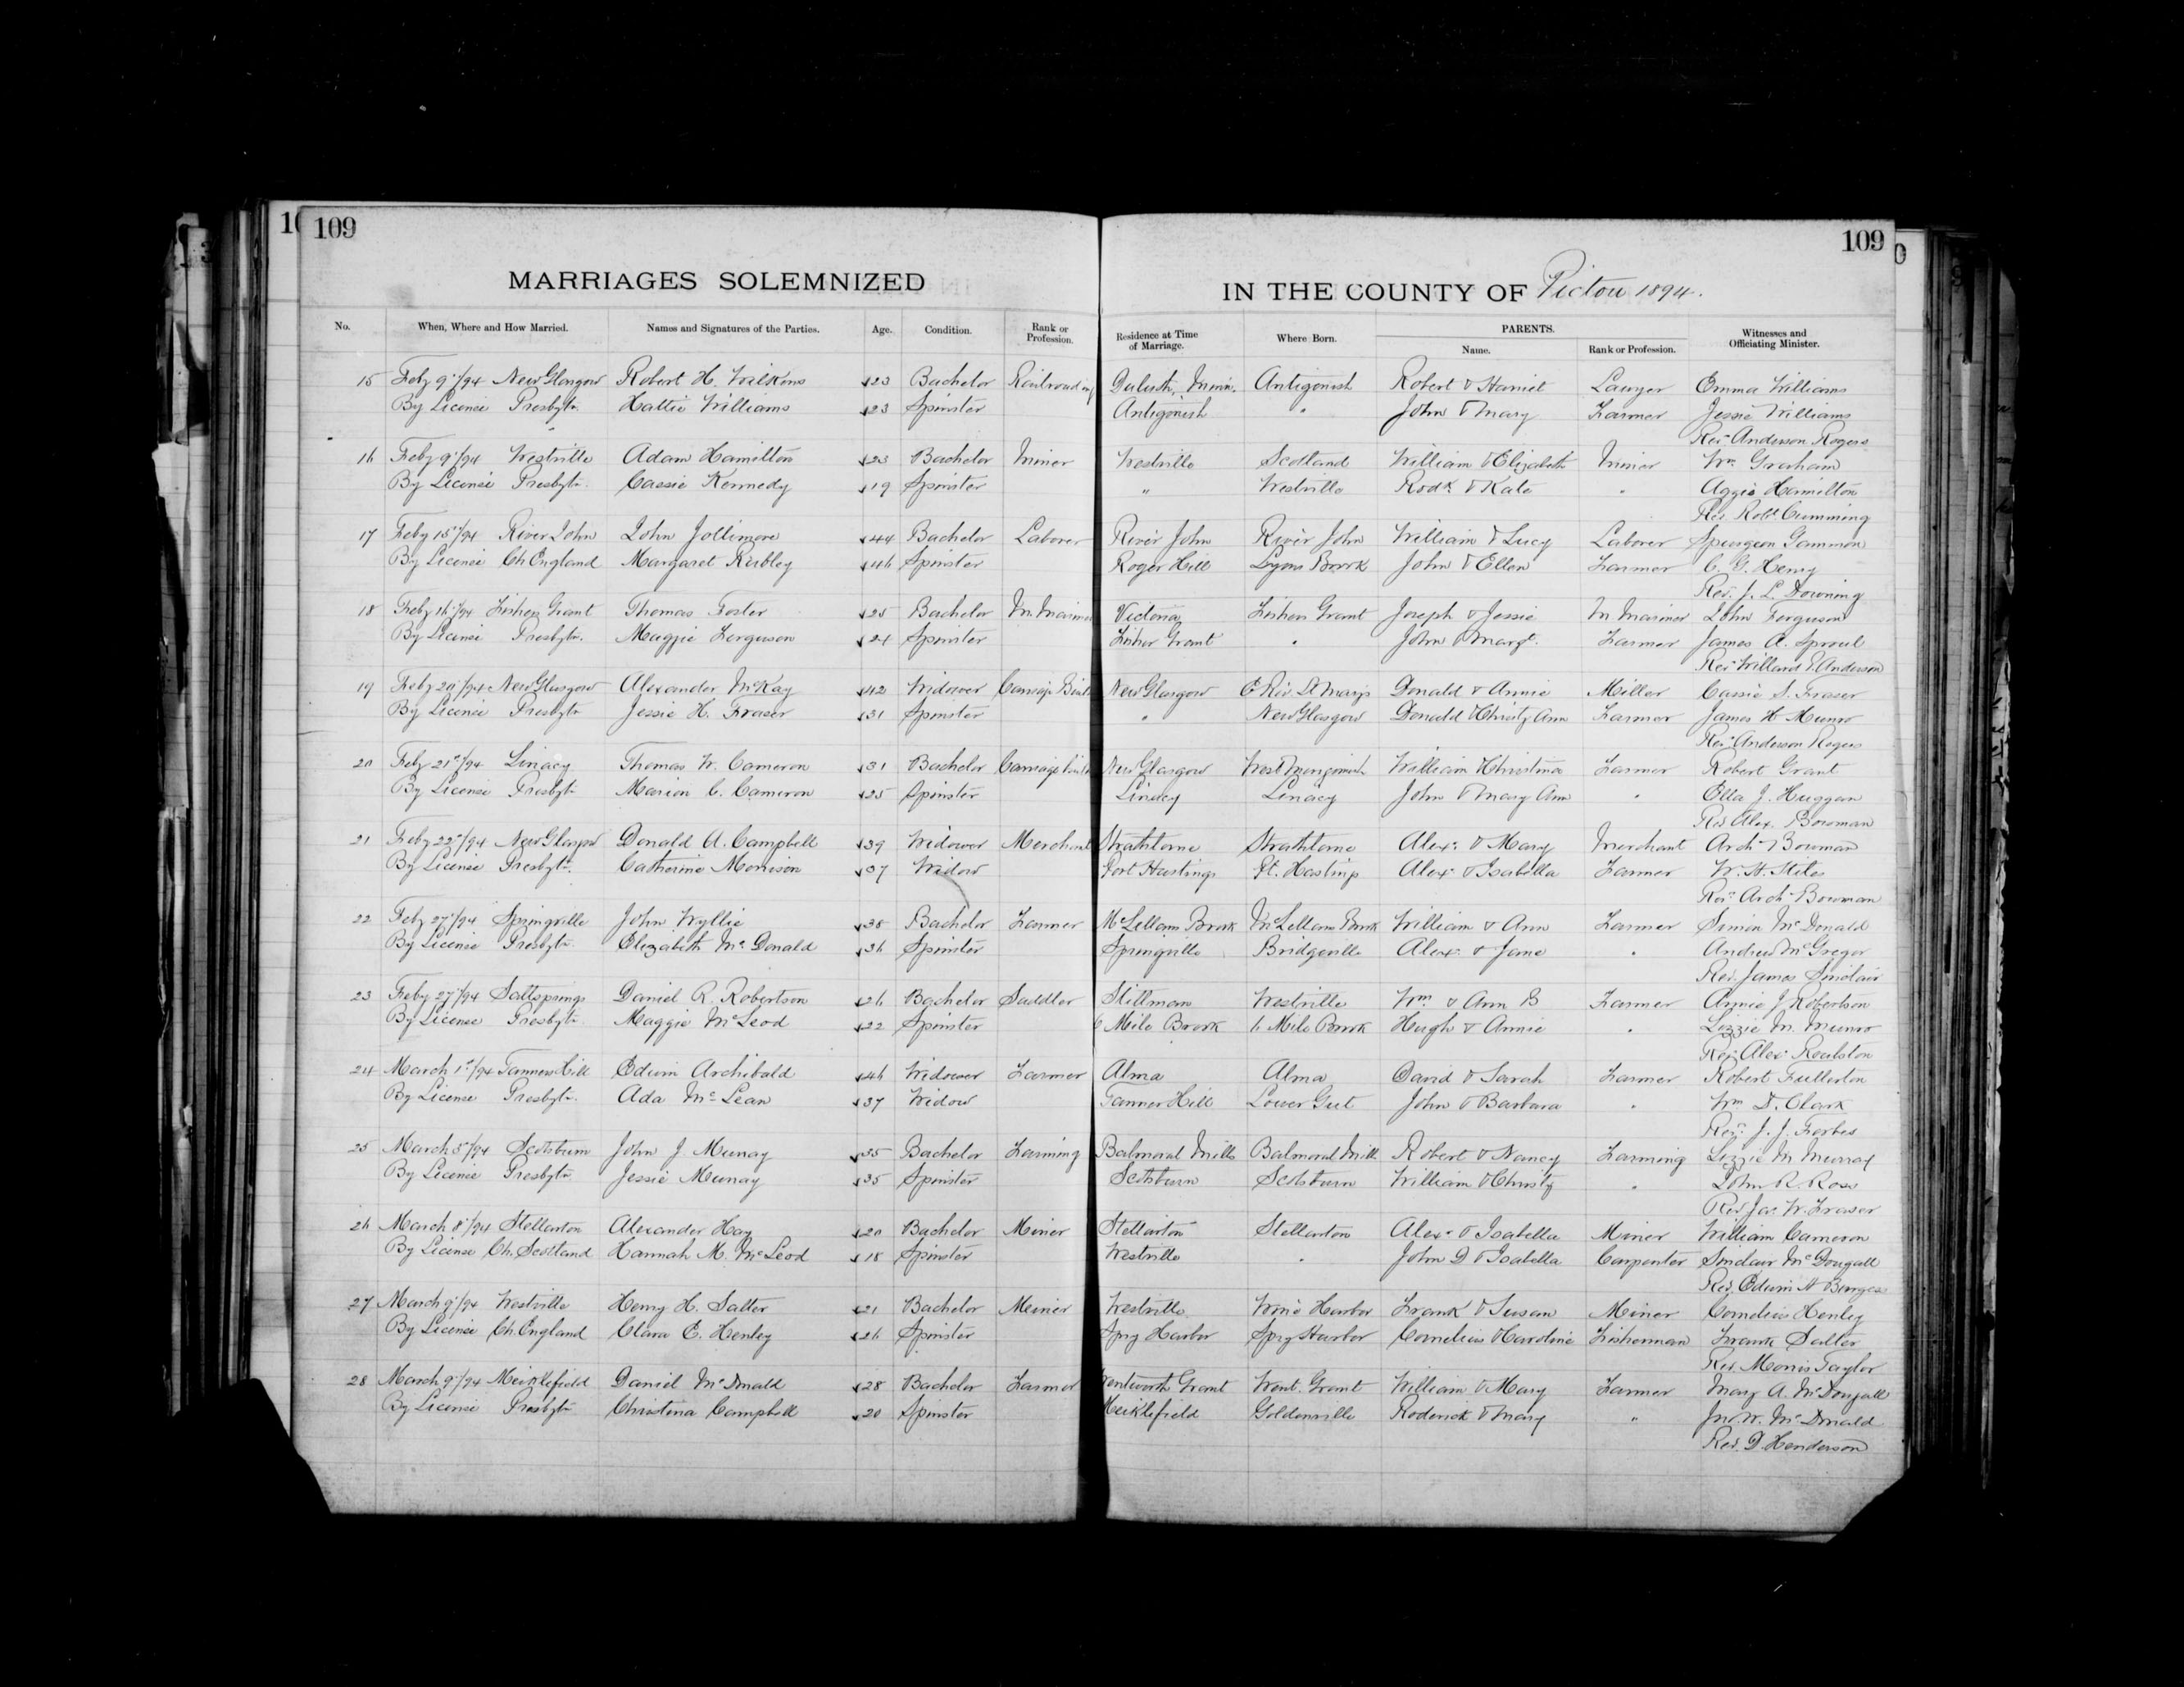 109
109
MARRIAGES SOLEMNIZED IN THE COUNTY OF Pictou 1894.
No. When, Where and How Married. Names and Signatures of the Parties. Age. Condition. Rank or Profession. Residence at Time of Marriage. Where Born. PARENTS. Name. Rank or Profession. Witnesses and Officiating Minister.
15 Feby 9"/94 New Glasgow Robert H. Wilkins 23 Bachelor Railroading Duluth, Minn. Antigonish Robert & Harriet Lawyer Emma Williams
By License Presbytn. Hattie Williams 23 Spinster Antigonish " John & Mary Farmer Jessie Williams
Rev. Anderson Rogers
16 Feby 9"/94 Westville Adam Hamilton 23 Bachelor Miner Westville Scotland William & Elizabeth Miner Wm. Graham
By License Presbytn. Cassie Kennedy 19 Spinster " Westville Rodk. & Kate " Aggie Hamilton
Rev. Robt. Cumming
17 Feby 15"/94 River John John Jollimore 44 Bachelor Laborer River John River John William & Lucy Laborer Spurgeon Gammon
By License Ch England Margaret Rubley 46 Spinster Roger Hill Lyons Brook John & Ellen Farmer C. G. Henry
Rev. J. L. Downing
18 Feby 16"/94 Fishers Grant Thomas Foster 25 Bachelor M. Mariner Victoria Fishers Grant Joseph & Jessie M Mariner John Ferguson
By License Presbytn. Maggie Ferguson 24 Spinster Fisher Grant " John & Margt. Farmer James A. Sproul
Rev. Willard P. Anderson
19 Feby 20"/94 New Glasgow Alexander McKay 42 Widower Carriage Build New Glasgow E Riv. St Marys Donald & Annie Miller Cassie S. Fraser
By License Presbytn Jessie H. Fraser 31 Spinster " New Glasgow Donald & Christy Ann Farmer James H Munro
Rev. Anderson Rogers
20 Feby 21st/94 Linacy Thomas W. Cameron 31 Bachelor Carriage Build New Glasgow West Merigomish William & Christina Farmer Robert Grant
By License Presbytn Marion C. Cameron 25 Spinster Linacy Linacy John & Mary Ann " Ella J. Huggan
Rev Alex. Bowman
21 Feby 22"/94 New Glasgow Donald A. Campbell 39 Widower Merchant Strathlorne Strathlorne Alexr. & Mary Merchant Archd. Bowman
By License Presbytn. Catherine Morrison 37 Widow Port Hastings Pt. Hastings Alexr. & Isabella Farmer W. H. Stiles
Rev. Archd. Bowman
22 Feby 27"/94 Springville John Wyllie 38 Bachelor Farmer McLellans Brook McLellans Brook William & Ann Farmer Simon McDonald
By License Presbytn. Elizabeth McDonald 36 Spinster Springville Bridgeville Alexr. & Jane " Andrew McGregor
Rev. James Sinclair
23 Feby 27"/94 Saltsprings Daniel R. Robertson 26 Bachelor Saddler Stillman Westville Wm. & Ann B Farmer Annie J Robertson
By License Presbytn. Maggie McLeod 22 Spinster 6 Mile Brook 6 Mile Brook Hugh & Annie " Lizzie M. Munro
Rev. Alexr.
24 March 1st/94 Tanners Hill Edwin Archibald 46 Widower Farmer Alma Alma David & Sarah Farmer Robert Fullerton
By License Presbytn. Ada McLean 37 Widow Tanner Hill Lower Gut John & Barbara " Wm. D. Clark
Rev. J. J. Forbes
25 March 5"/94 Scotsburn John J Murray 35 Bachelor Farming Balmoral Mills Balmoral Mills Robert & Nancy Farming Lizzie M Murray
By License Presbytn Jessie Murray 35 Spinster Scotsburn Scotsburn William & Christy " John R. Ross
Rev Jas. W. Fraser
26 March 8"/94 Stellarton Alexander Hay 20 Bachelor Miner Stellarton Stellarton Alexr. & Isabella Miner William Cameron
By License Ch. Scotland Hannah M. McLeod 18 Spinster Westville " John D & Isabella Carpenter Sinclair McDougall
Rev. Edwin H Burgess
27 March 9"/94 Westville Henry H. Salter 21 Bachelor Meiner Westville Wine Harbor Frank & Susan Miner Cornelius Henley
By License Ch. England Clara E. Henley 26 Spinster Spry Harbor Spry Harbor Cornelius & Caroline Fisherman Frank Salter
Rev. Morris Taylor
28 March 9"/94 Meiklefield Daniel McDonald 28 Bachelor Farmer Wentworth Grant Went. Grant William & Mary Farmer Mary A. McDougall
By License Presbytn Christena Campbell 20 Spinster Meiklefield Goldenville Roderick & Mary " Jno. W. McDonald
Rev. D. Henderson